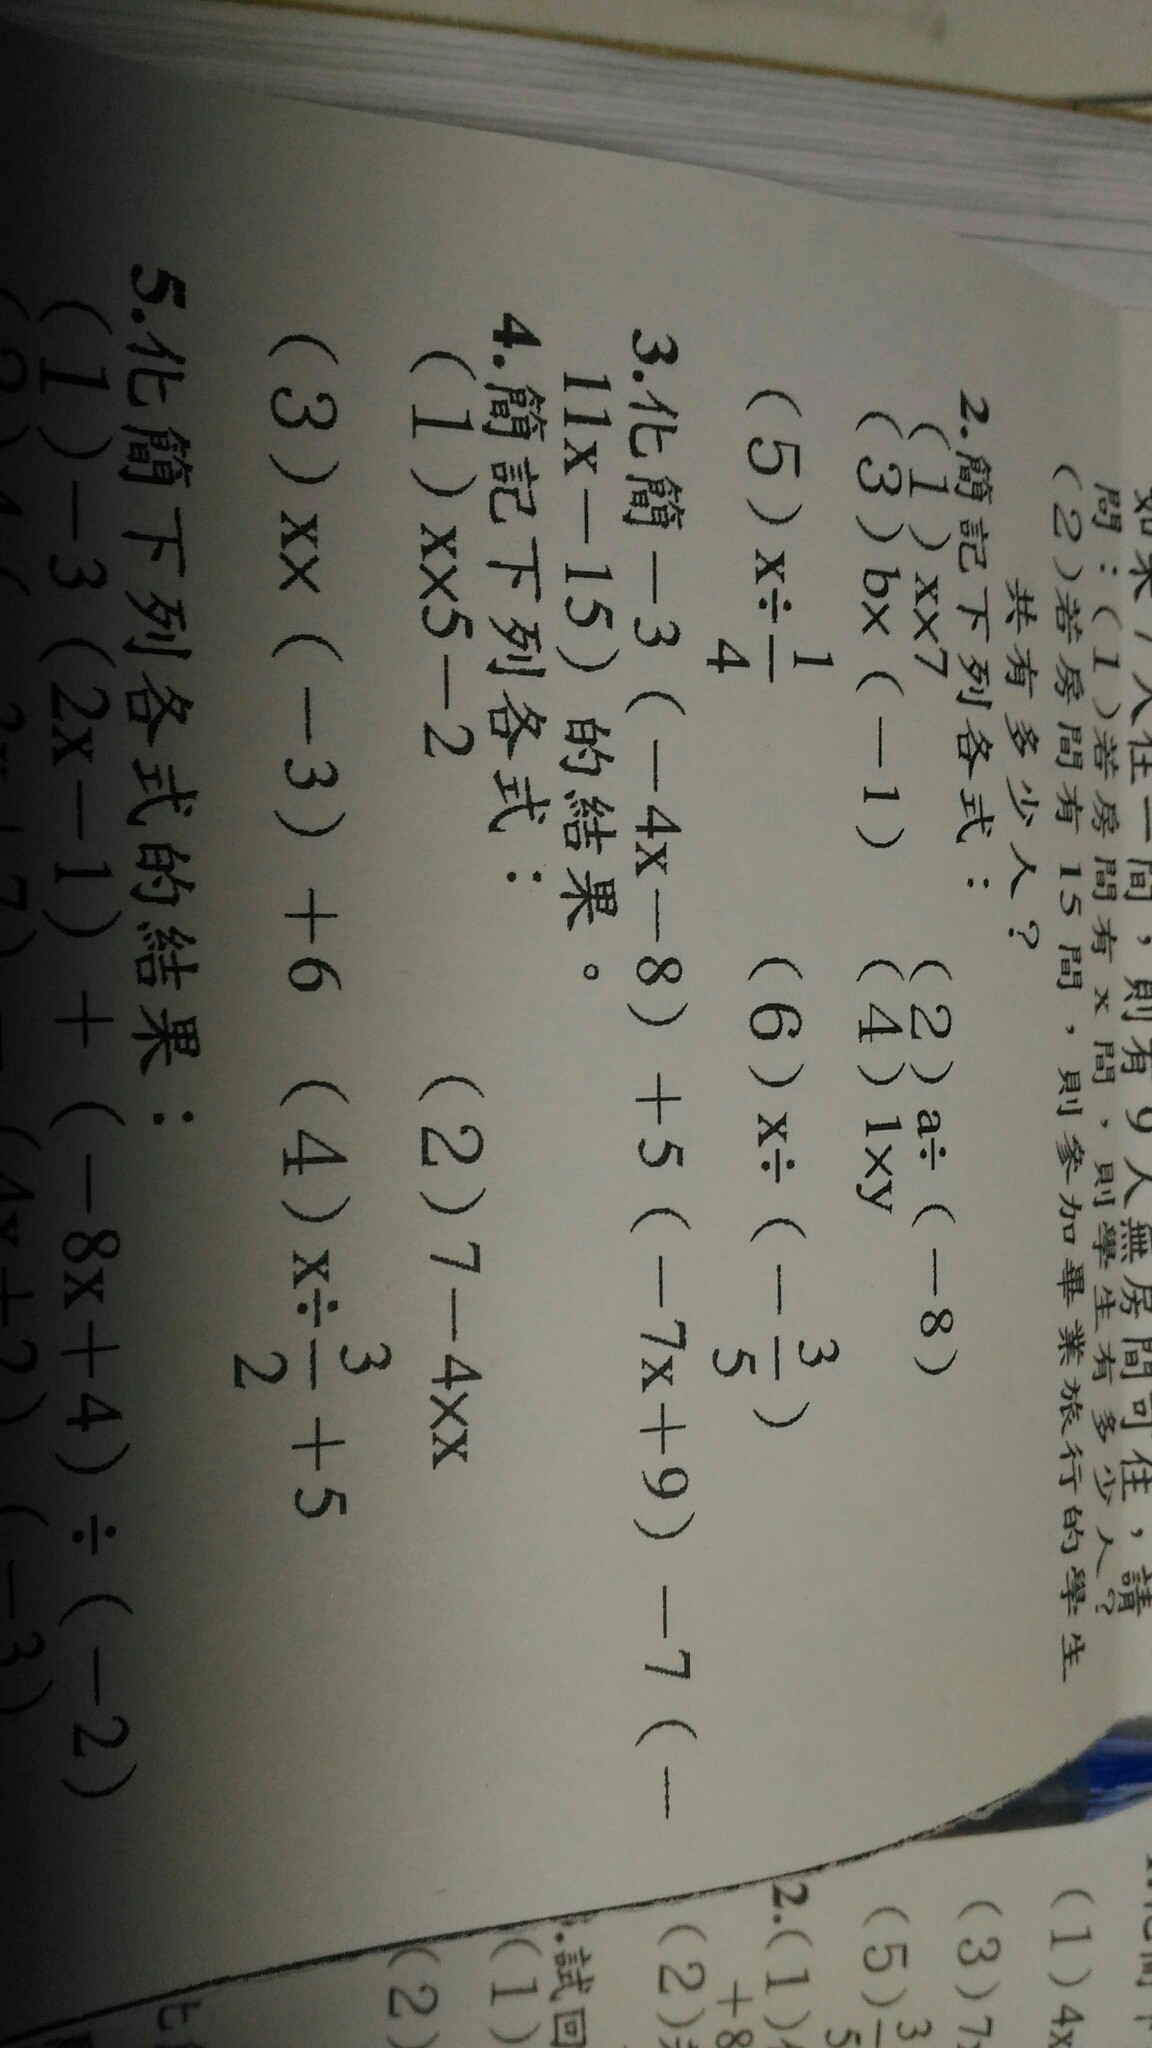 如果7人住一間，則有9人無房間可住，請
問：(1)若房間有x間，則學生有多少人？
(2)若房間有15間，則參加畢業旅行的學生
共有多少人？
2.簡記下列各式：
(1)x×7 (2)a÷(－8)
(3)b×(－1) (4)1×y
(5)x÷1/4 (6)x÷(－3/5)
3.化簡－3(－4x－8)＋5(－7x＋9)－7(－
11x－15)的結果。
4.簡記下列各式：
(1)x×5－2 (2)7－4×x
(3)x×(－3)＋6 (4)x÷3/2＋5
5.化簡下列各式的結果：
(1)－3(2x－1)＋(－8x＋4)÷(－2)
(4x＋2) (－3)
(1)4x
(3)7
(5)3/5
2.(1)
＋8
(2)
.試回
(1)
(2)